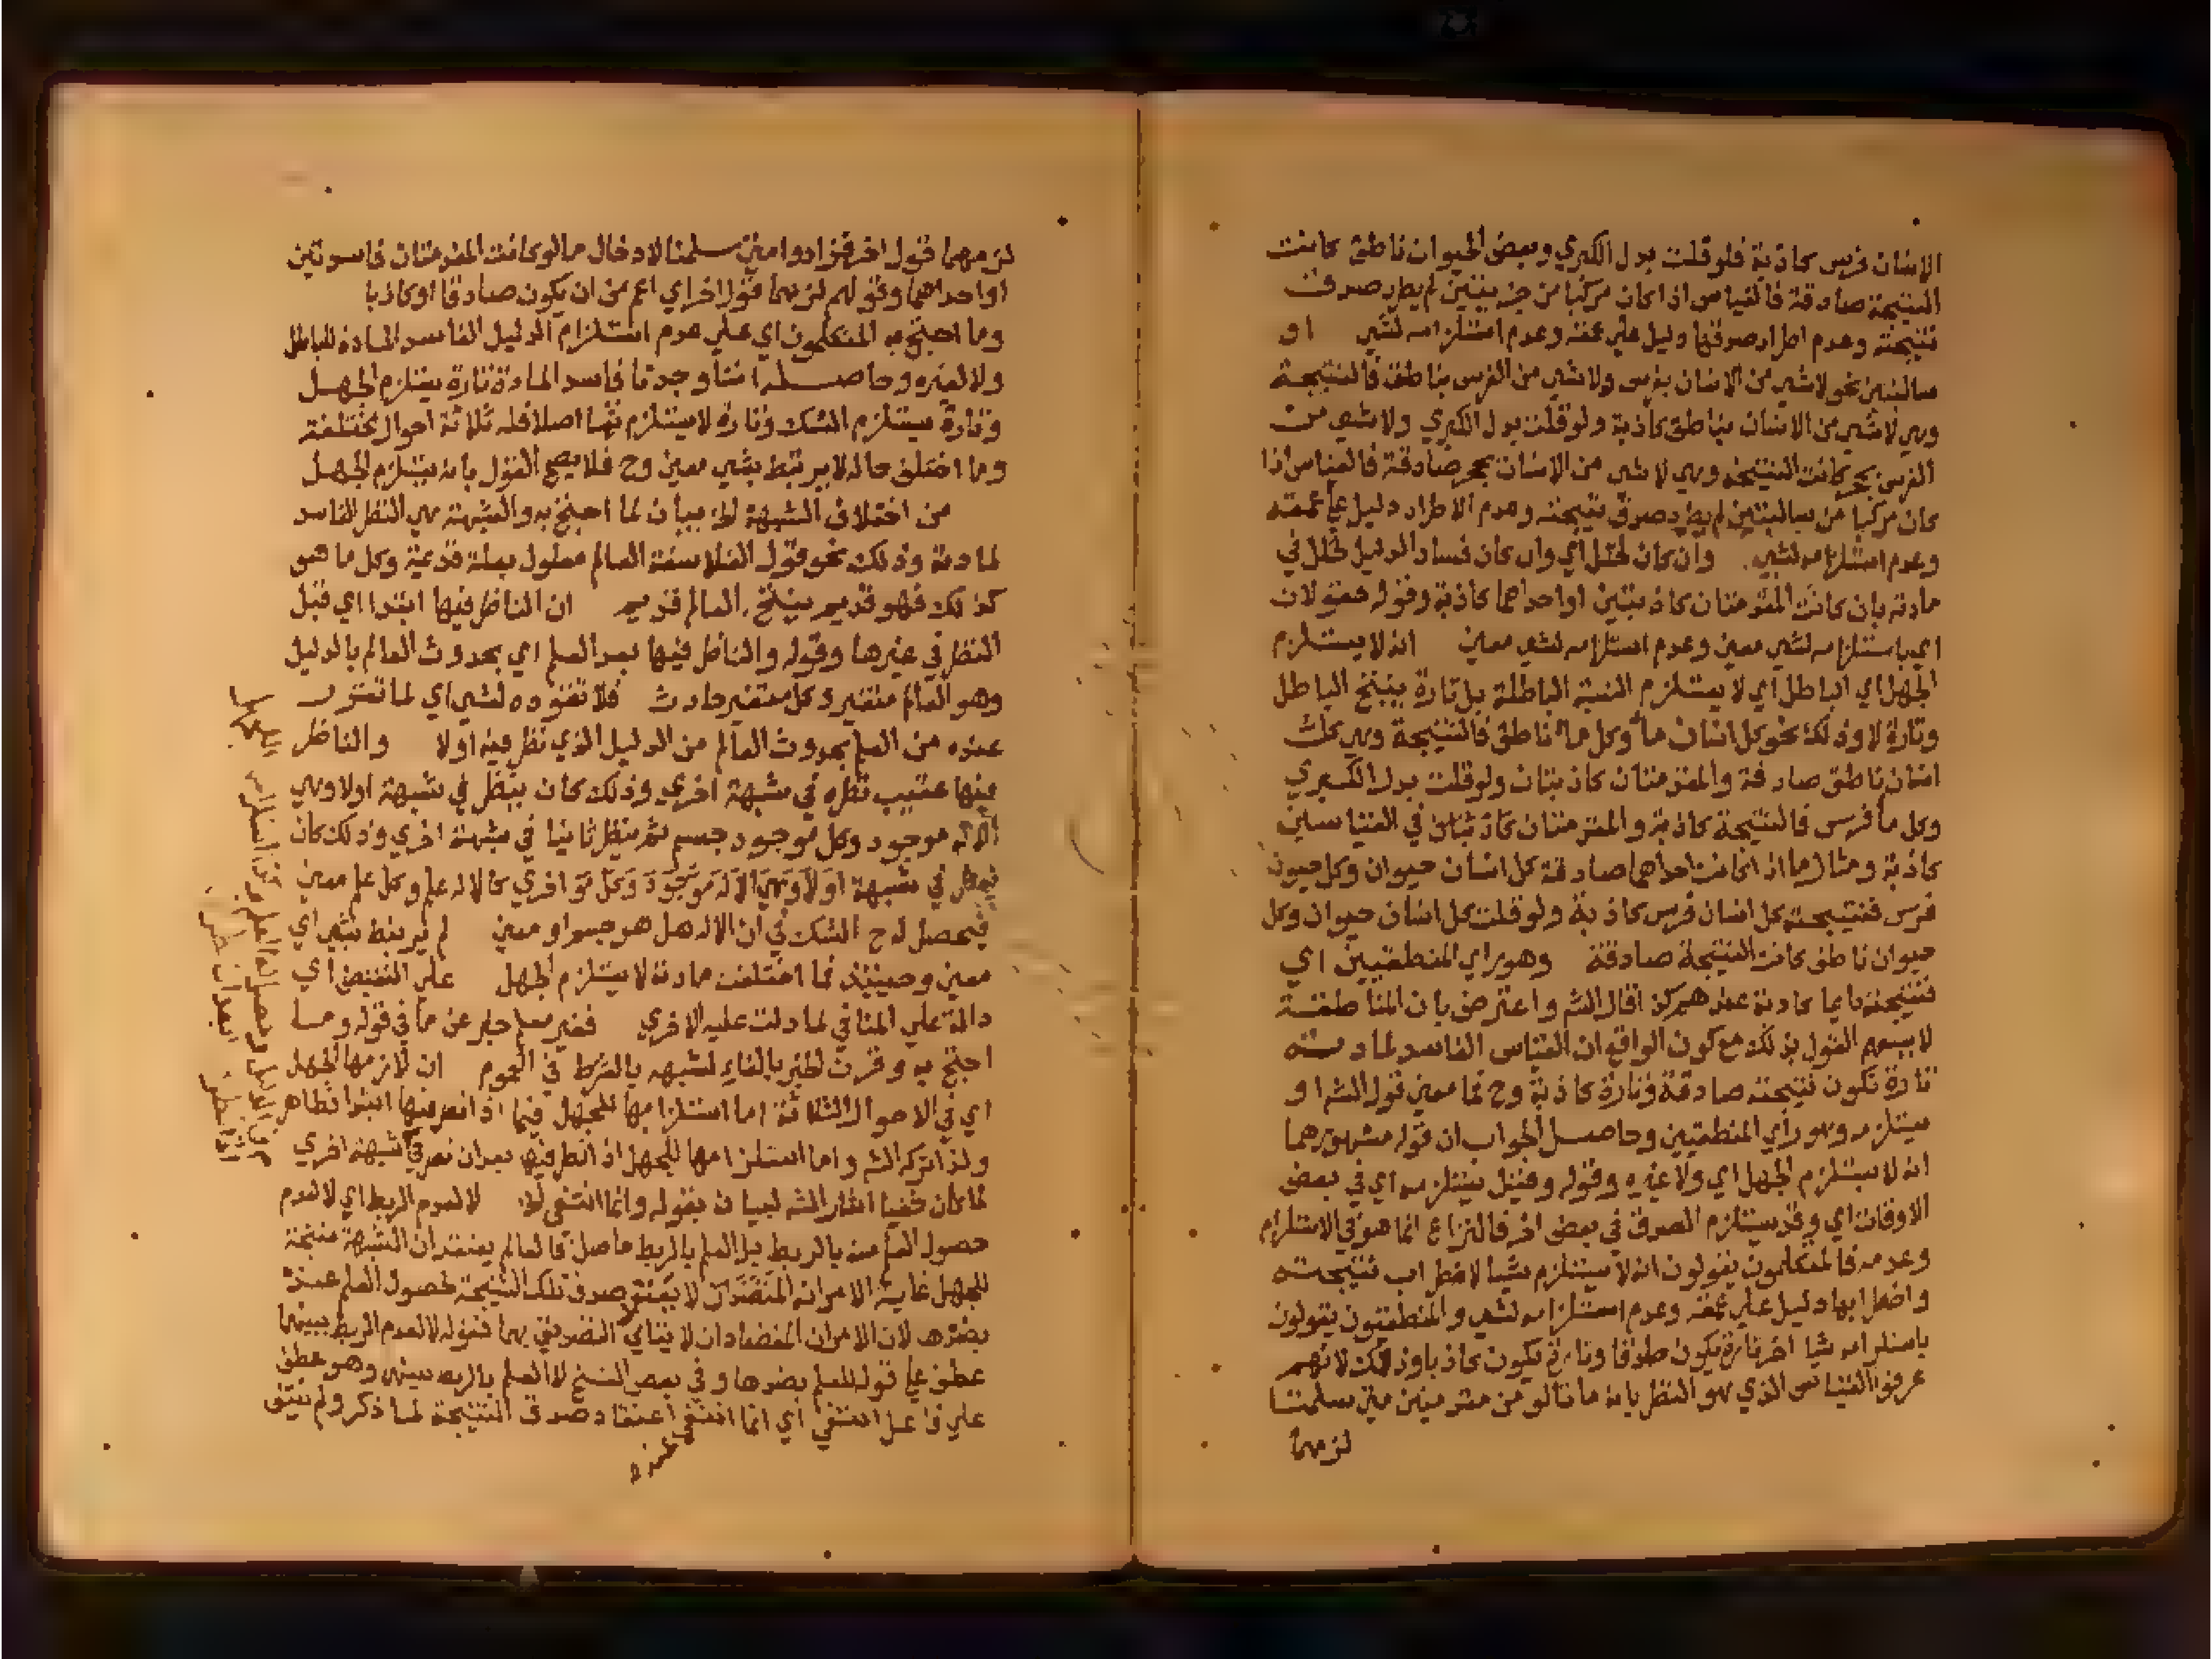 الانسان فرس كاذبة فلو قلت بدل الكبري وبعض الحيوان ناطق كانت
النتيجة صادقة فالقياس اذا كان مركبا من جزييتين لم يطرد صدق
نتيجته وعدم اطراد صدقها دليل علي عقمه وعدم استلزامه لشي او
سالبتين نحو لا شي من الانسان بفرس ولا شي من الفرس بناطق فالنتيجة
وهي لا شي من الانسان بناطق كاذبة ولو قلت بدل الكبري ولا شي من
الفرس بحجر كانت النتيجة وهي لا شي من الانسان بحجر صادقة فالقياس اذا
كان مركبا من سالبتين لم يطرد صدق نتيجته وعدم الاطراد دليل علي عقمه
وعدم استلزامه لشي وان كان لخلل اي وان كان فساد الدليل لخلل في
مادته بان كانت المقدمتان كاذبتين او احداهما كاذبة وقوله فقولان
اي باستلزامه لشي معين وعدم استلزامه لشي معين انه لا يستلزم
الجهل اي الباطل اي لا يستلزم النتيجة الباطلة بل تارة ينتج الباطل
وتارة لا وذلك نحو كل انسان ماء وكل ماء ناطق فالنتيجة وهي كل
انسان ناطق صادقة والمقدمتان كاذبتان ولو قلت بدل الكبري
وكل ماء فرس فالنتيجة كاذبة والمقدمتان كاذبتان في القياسين
كاذبة ومثال ما اذا كانت احداهما صادقة كل انسان حيوان وكل حيوان
فرس فنتيجته كل انسان فرس كاذبة ولو قلت كل انسان حيوان وكل
حيوان ناطق كانت النتيجة صادقة وهو راي المنطقيين اي
فنتيجته دايما كاذبة عندهم كذا قال الش واعترض بان المناطقة
لا يسعهم القول بذلك مع كون الواقع ان القياس الفاسد لمادته
تارة تكون نتيجته صادقة وتارة كاذبة وح فما معني قول الش او
يستلزمه وهو راي المنطقيين وحاصل الجواب ان قوله مشهورهما
انه لا يستلزم الجهل اي ولا غيره وقوله وقيل يستلزمه اي في بعض
الاوقات اي وقد يستلزم الصدق في بعض اخر فالنزاع انما هو في الاستلزام
وعدمه فالمتكلمون يقولون انه لا يستلزم شيا لاضطراب نتيجته
واضطرابها دليل علي عقمه وعدم استلزامه لشي والمنطقيون يقولون
باستلزامه شيا اخر تارة يكون صادقا وتارة يكون كاذبا وذلك لانهم
عرفوا القياس الذي هو النظر بانه ما تالف من مقدمتين متي سلمتا
لزمهما
لزمهما قول اخر فزادوا متي سلمتا لادخال ما لو كانت المقدمتان فاسدتين
او احداهما وقولهم لزمهما قول اخر اي اعم من ان يكون صادقا او كاذبا
وما احتج به المتكلمون اي علي عدم استلزام الدليل الفاسد المادة للباطل
ولا لغيره وحاصله اننا وجدنا فاسد المادة تارة يستلزم الجهل
وتارة يستلزم الشك وتارة لا يستلزم شيا اصلا فله ثلاثة احوال مختلفة
وما اختلف حاله لا يرتبط بشي معين وح فلا يصح القول بانه يستلزم الجهل
من اختلاف الشبهة الخ بيان لما احتج به والشبهة هي النظر الفاسد
لمادته وذلك نحو قول الفلاسفة العالم معلول بعلة قديمة وكل ما هو
كذلك فهو قديم ينتج العالم قديم ان الناظر فيها ابتدا اي قبل
النظر في غيرها وقوله والناظر فيها بعد العلم اي بحدوث العالم بالدليل
وهو العالم متغير وكل متغير حادث فلا تقوده لشي اي لما تقرر
عنده من العلم بحدوث العالم من الدليل الذي نظر فيه اولا والناظر
فيها عقيب نظره في شبهة اخري وذلك كان ينظر في شبهة اولا وهي
الاله موجود وكل موجود جسم ثم ينظر ثانيا في شبهة اخري وذلك كان
ينظر في شبهة اولا وهي الاله موجود وكل مو اخري كالاله علم وكل علم معني
فيحصل له ح الشك في ان الاله هل هو جسم او معني لم يرتبط بشي اي
معين وحينيذ فما اختلفت مادته لا يستلزم الجهل علي النقيض اي
دالة علي المنافي لما دلت عليه الاخري فغير مسلم خبر عن ما في قوله وما
احتج به وقرن الخبر بالفاء لشبهه بالشرط في العموم ان لازمها الجهل
اي في الاحوال الثلاثة اما استلزامها للجهل فيما اذا نظر فيها ابتدا فظاهر
ولذا تركه الش واما استلزامها للجهل اذا نظر فيها بعد ان نظر في شبهة اخري
لما كان خفيا اشار الش لبيانه بقوله وانما انتفي الخ لا لعدم الربط اي لا لعدم
حصول العلم منه بالربط بل العلم بالربط حاصل فالعالم يعتقد ان الشبهة منتجة
للجهل غاية الامر انه لا يعتقد صدق تلك النتيجة لحصول العلم عنده
بضدها لان الامران المتضادان لا يتاتي التصديق بهما فقوله لا لعدم الربط بينهما
عطف علي قوله للعلم بضدها وفي بعض النسخ لا العلم بالربط بينهم وهو عطف
علي فاعل انتفي اي انما انتفي اعتقاد صدق النتيجة لما ذكر ولم ينتف
عنده